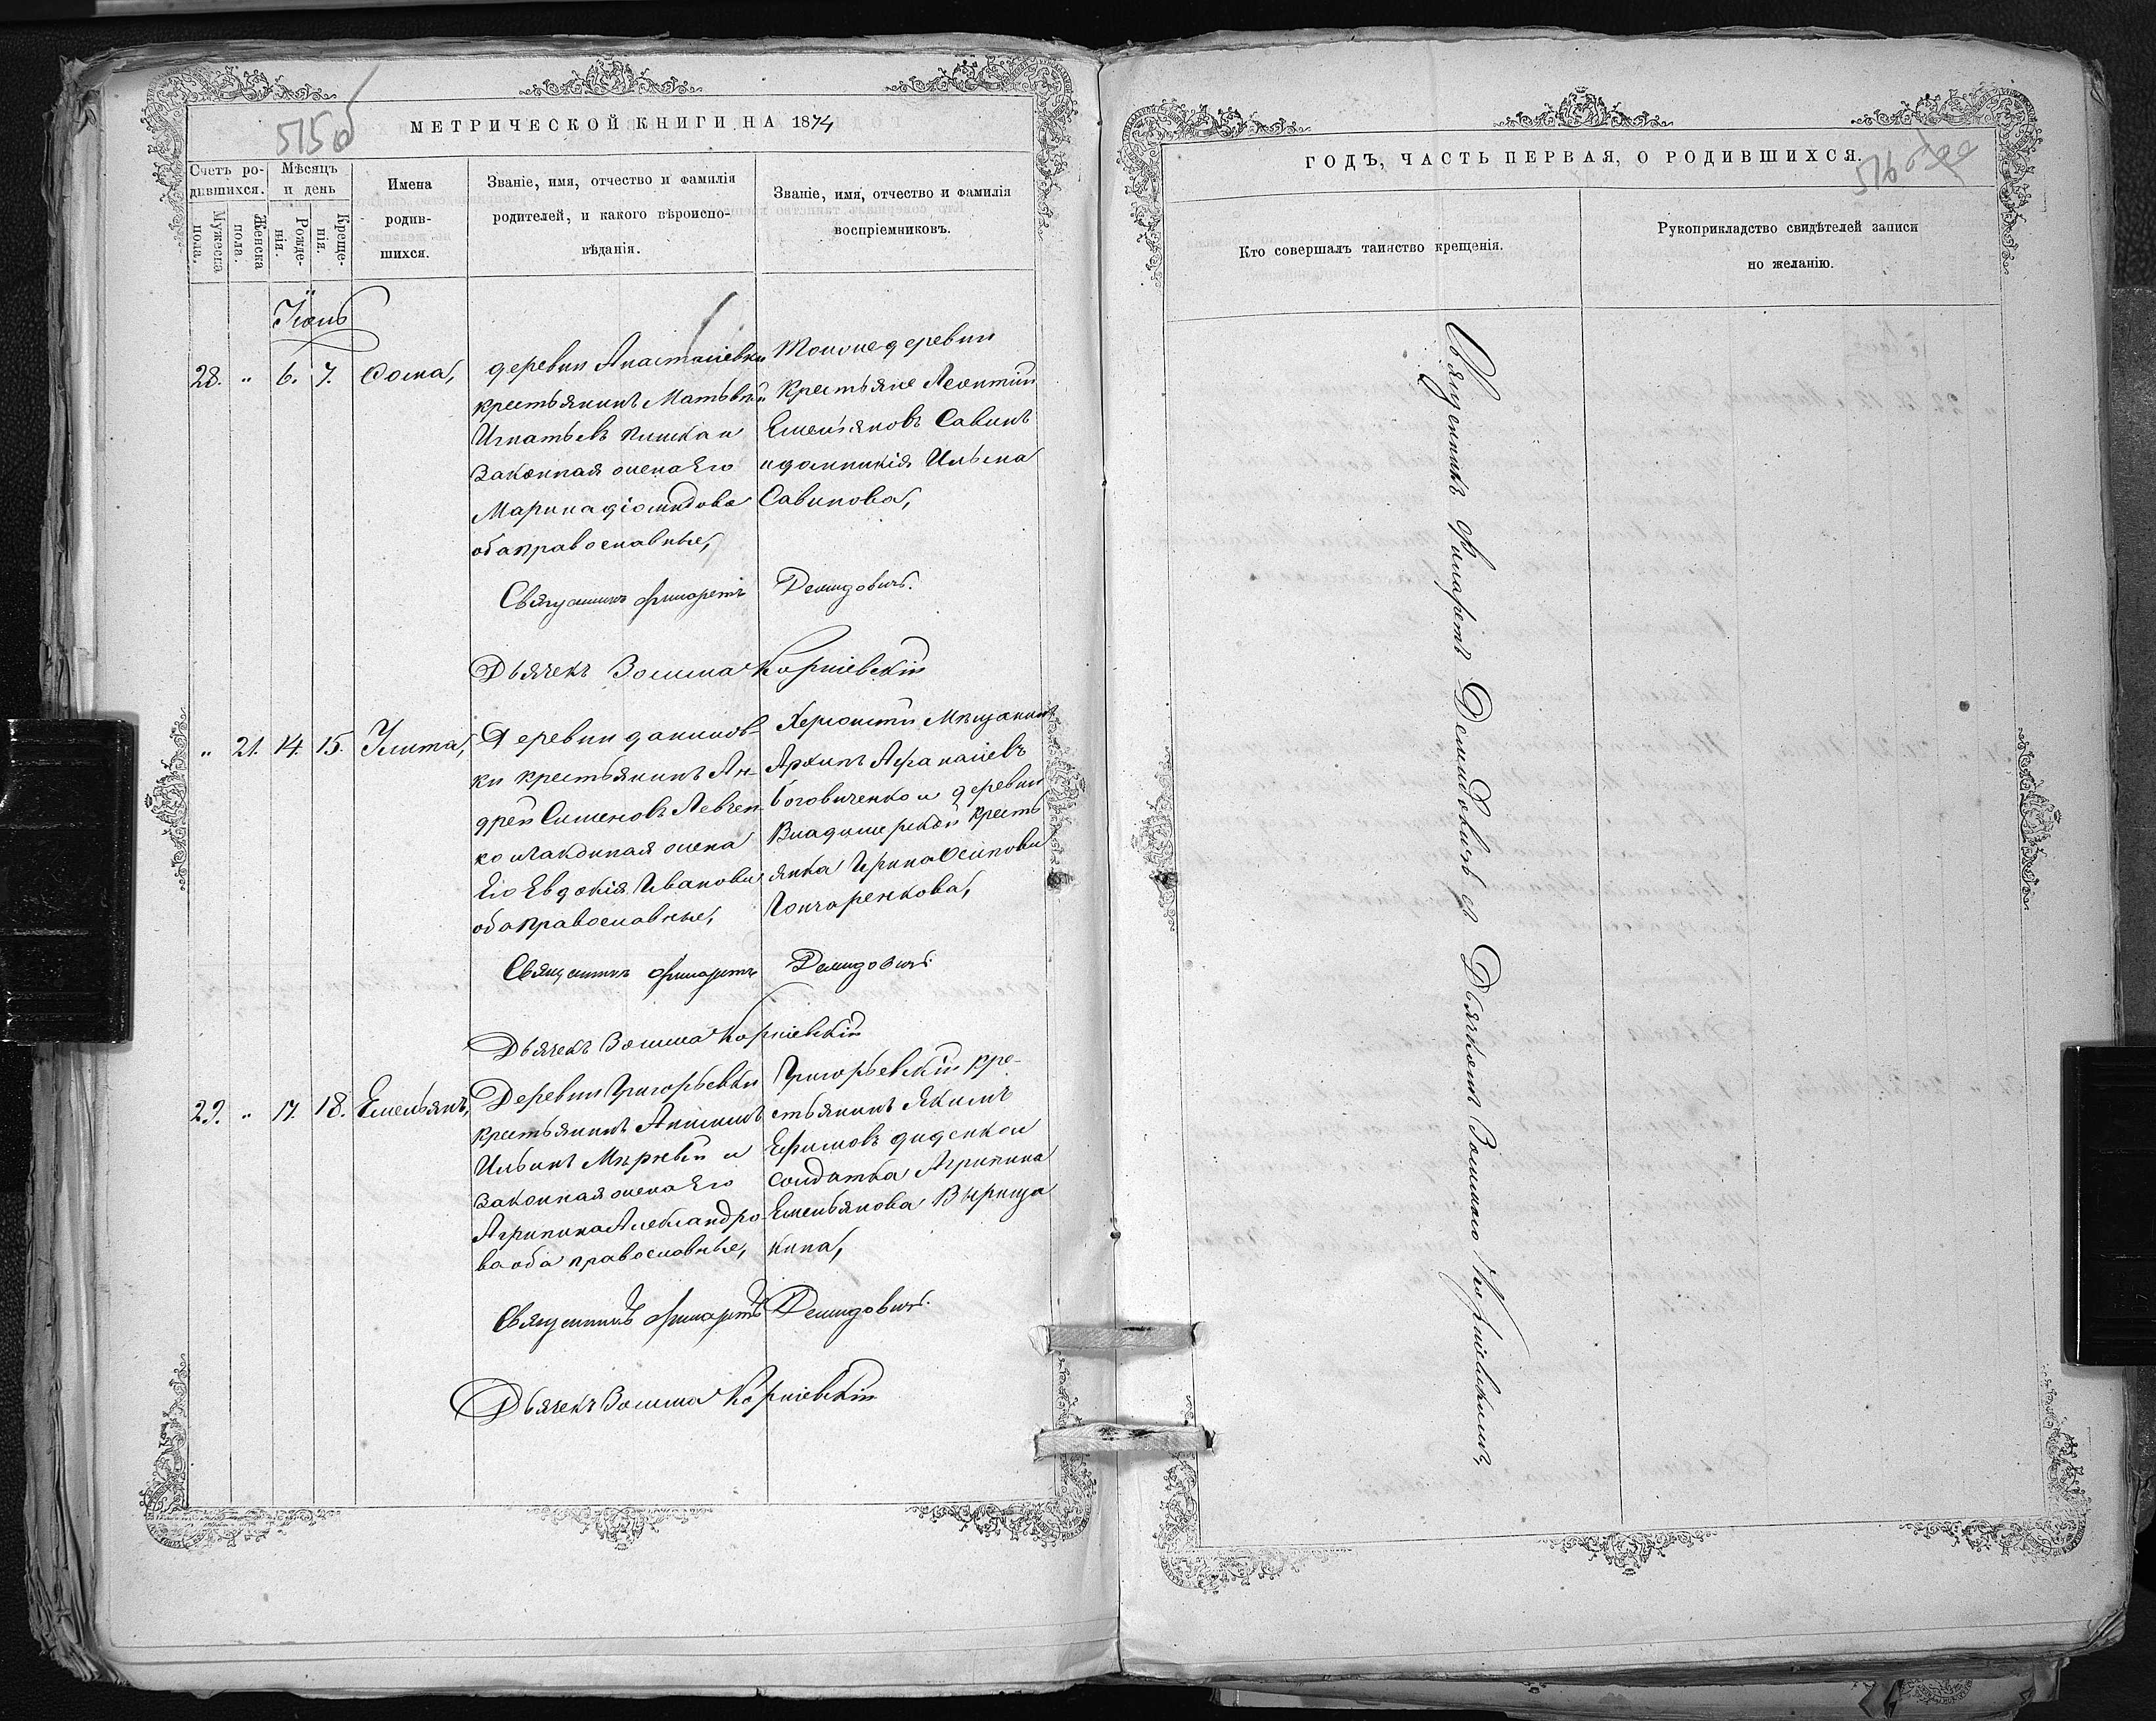 515об
МЕТРИЧЕСКОЙ КНИГИ НА 1874
Счетъ ро-
дившихся.
Мужеска пола.
Женска пола.
Мѣсяцъ
и день
Рожде-
нія.
Креще-
нія.
Имена
родив-
шихся.
Званіе, имя, отчество и фамилія
родителей, и какого вѣроиспо-
вѣданія.
Званіе, имя, отчество и фамилія
воспріемниковъ.
Іюнь
28. " 6. 7. Фома,
деревни Анастасіевки
крестьянинъ Матвѣй
Игнатьевъ и
Законная жена Его
Марина Діомидова
оба православные,
Тойже деревни
Крестьяне Леонтій
Емельяновъ Савинъ
и домникія Ильина
Савинова,
Священникъ Филаретъ Демидовичъ.
Дьячекъ Зосима Корніевскій
" 21. 14. 15. Улита,
Деревни данилов-
ки крестьянинъ Ан-
дрей Сименовъ Левчен-
ко и Законная жена
Его Евдокія Иванова
оба православные,
Мѣщанинъ
Архипъ Афанасіевъ
боговиченко и деревни
Владимерской кресть
янка Ирина Осипова
Гончаренкова,
Священникъ Филаретъ Демидовичъ.
Дьячекъ Зосима Корніевскій
29. " 17. 18. Емельянъ,
Деревни Григорьевки
крестьянинъ
Ильинъ и
Законная жена Его
Агрипина Александро
ва оба православные,
Григорьевскій кре-
стьянинъ Якимъ
Ефимовъ диденко и
солдатка Агрипина
Емельянова
кина,
Священникъ Филаретъ Демидовичъ.
Дьячекъ Зосима Корніевскій
516
ГОДЪ, ЧАСТЬ ПЕРВАЯ, О РОДИВШИХСЯ.
Кто совершалъ таинство крещенія.
Рукоприкладство свидѣтелей записи
по желанію.
Священникъ Филаретъ Демидовичъ съ Дьячкомъ Зосимою Корніевскимъ,